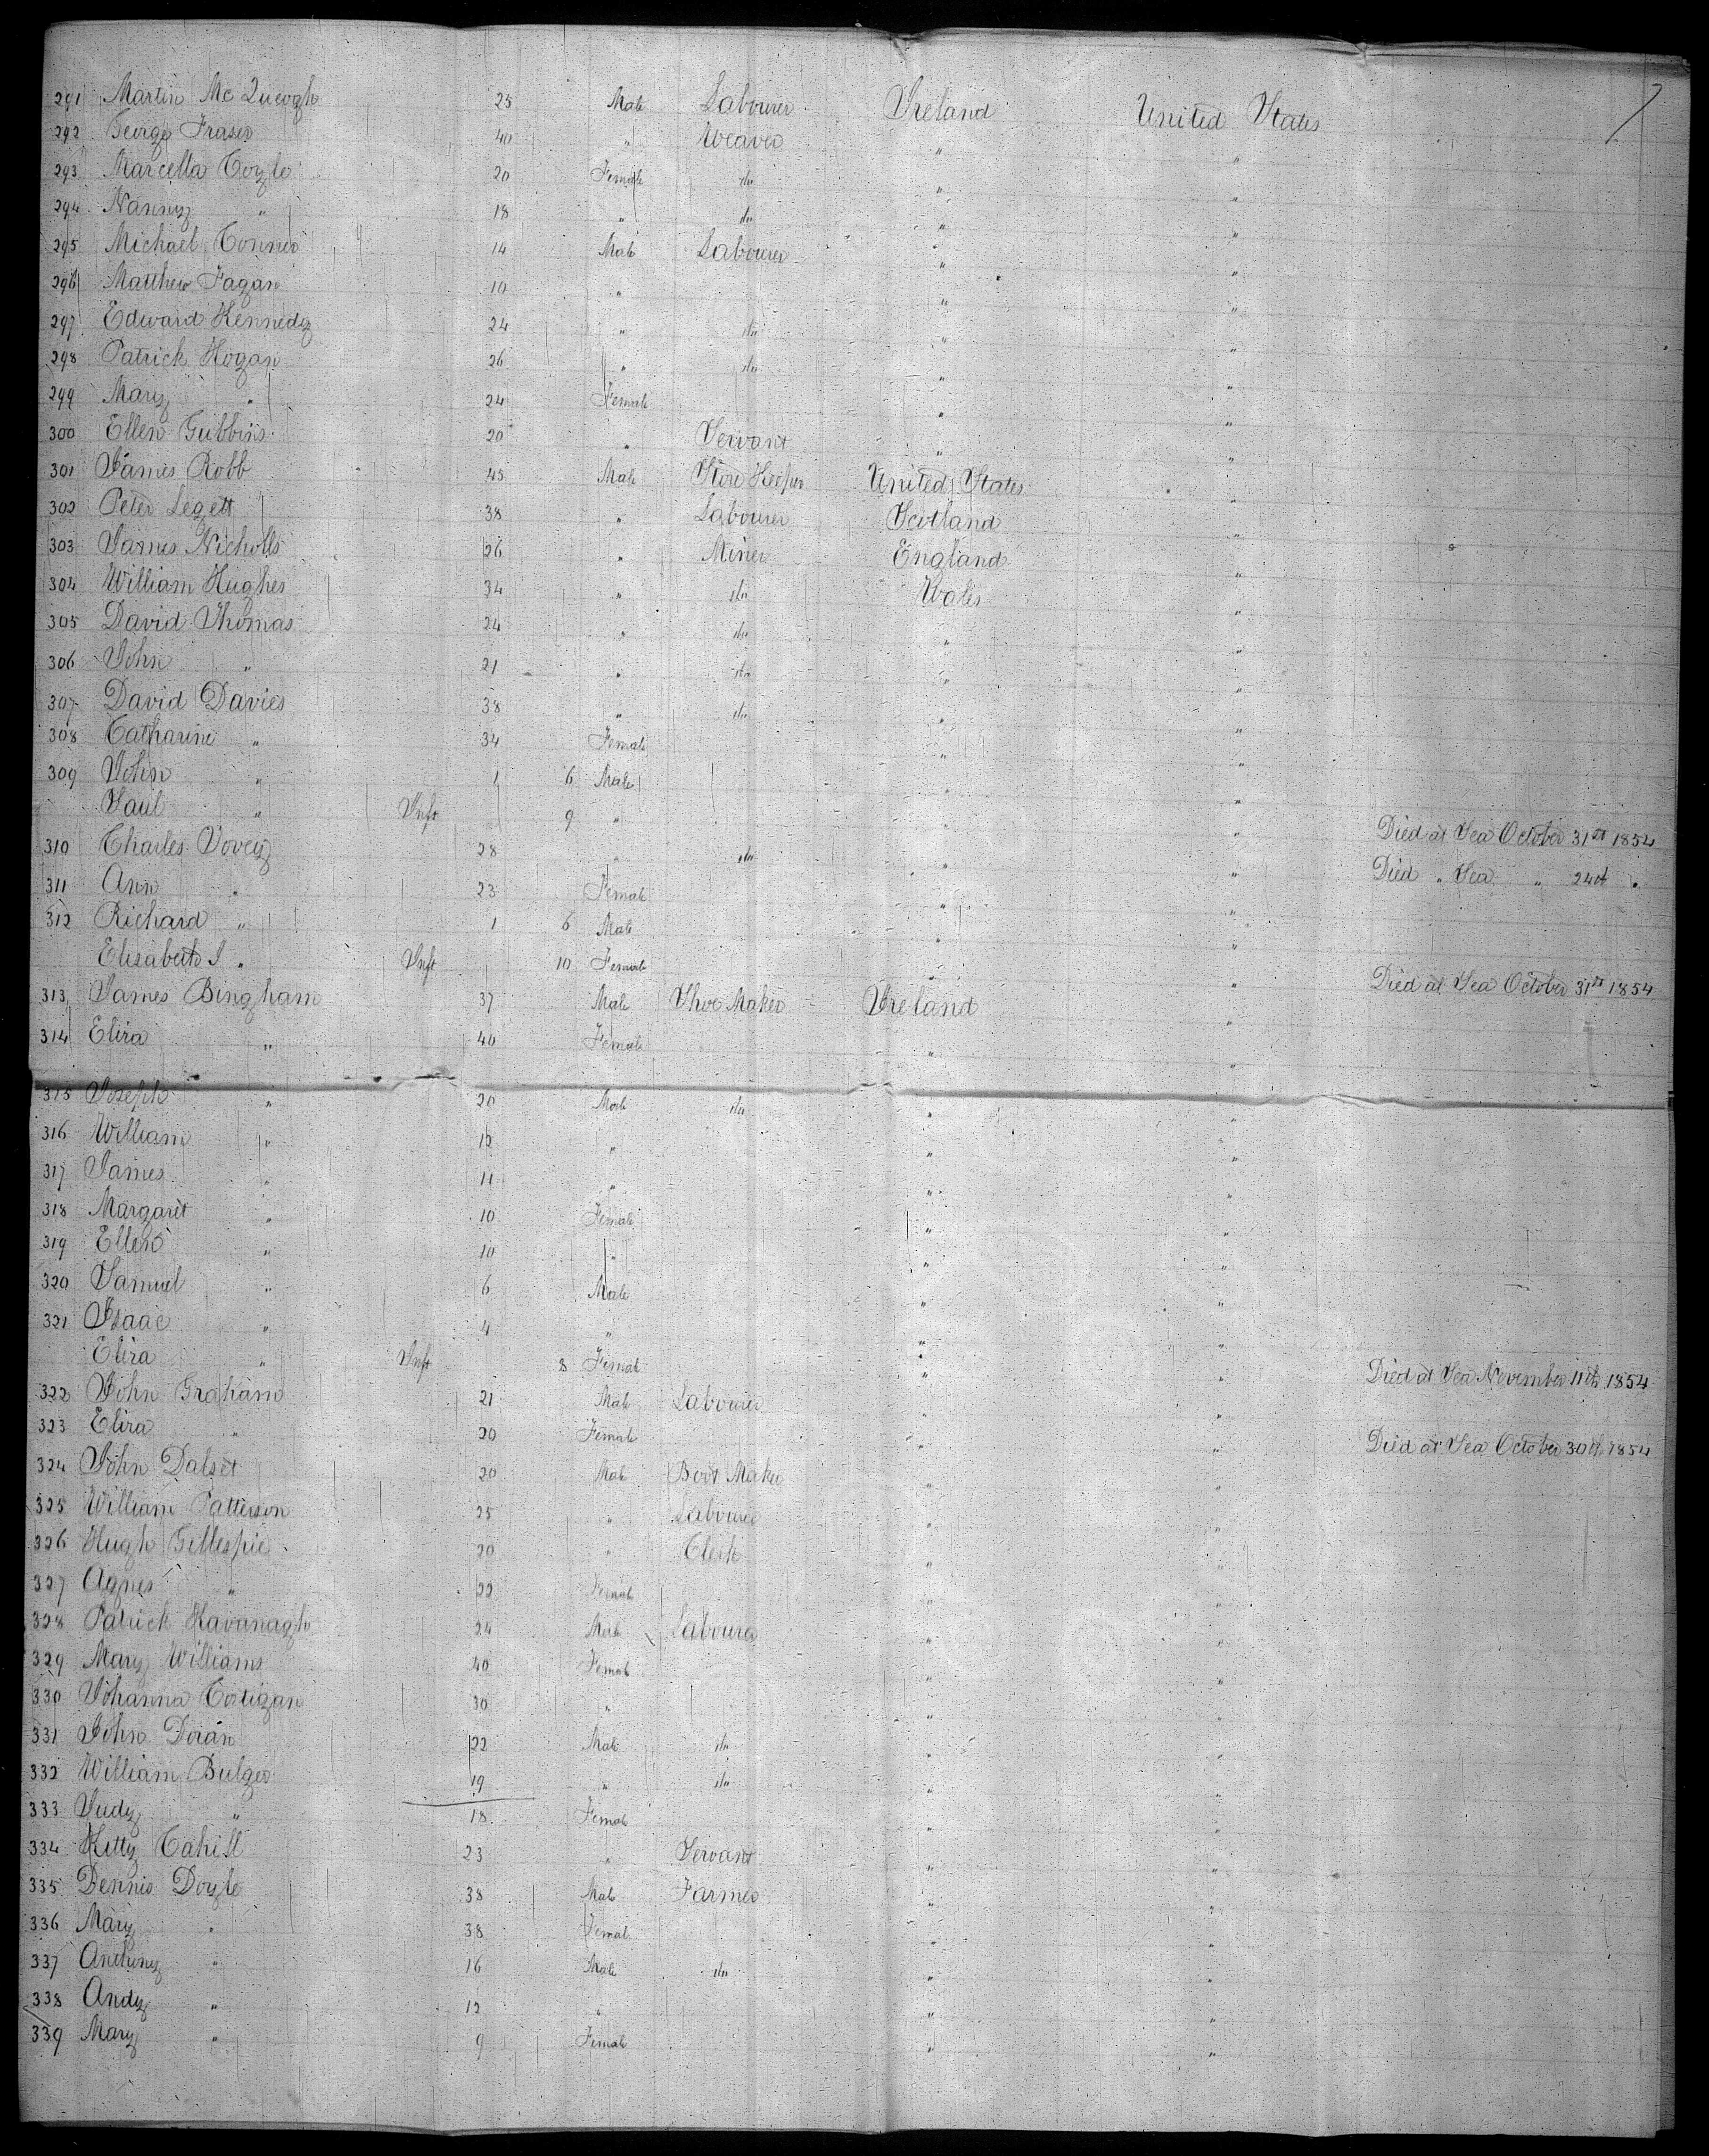 7
291 Martin Mc Queogh 25 Male Labourer Ireland United States
292 George Fraser 40 " Weaver " "
293 Marcella Coyle 20 Female do " "
294 Nanny " 18 " do " "
295 Michael Connor 14 Male Labourer " "
296 Matthew Fagan 10 " " "
297 Edward Kennedy 24 " do " "
298 Patrick Hogan 26 " do " "
299 Mary " 24 Female " "
300 Ellen Gubbins 20 " Servant " "
301 James Robb 45 Male Store Keeper United States "
302 Peter Legett 38 " Labourer Scotland "
303 James Nicholls 26 " Miner England "
304 William Hughes 34 " do Wales "
305 David Thomas 24 " do " "
306 John " 21 " do " "
307 David Davies 38 " do " "
308 Catharine " 34 Female " "
309 John " 1 6 Male " "
Saul " Inft 9 " " " Died at Sea October 31st 1854
310 Charles Vovey 28 " do " " Died " Sea " 24th "
311 Ann " 23 Female " "
312 Richard " 1 6 Male " "
Elisabeth J " Inft 10 Female " " Died at Sea October 31st 1854
313 James Bingham 37 Male Shoe Maker Ireland "
314 Eliza " 40 Female " "
315 Joseph " 20 Male do " "
316 William " 12 " " "
317 James " 11 " " "
318 Margaret " 10 Female " "
319 Ellen " 10 " " "
320 Samuel " 6 Male " "
321 Isaac " 4 " " "
Eliza " Inft 8 Female " " Died at Sea November 11th 1854
322 John Graham 21 Male Labourer " "
323 Eliza " 20 Female " " Died at Sea October 30th 1854
324 John Dalset 20 Male Boot Maker " "
325 William Patterson 25 " Labourer " "
326 Hugh Gillespie 20 " Clerk " "
327 Agnes " 22 Female " "
328 Patrick Kavanagh 24 Male Labourer " "
329 Mary Williams 40 Female " "
330 Johanna Costigan 30 " " "
331 John Doran 22 Male do " "
332 William Bulger 19 " do " "
333 Judy " 18 Female " "
334 Kitty Cahill 23 " Servant " "
335 Dennis Doyle 38 Male Farmer " "
336 Mary " 38 Female " "
337 Anthony " 16 Male do " "
338 Andy " 12 " " "
339 Mary " 9 Female " "